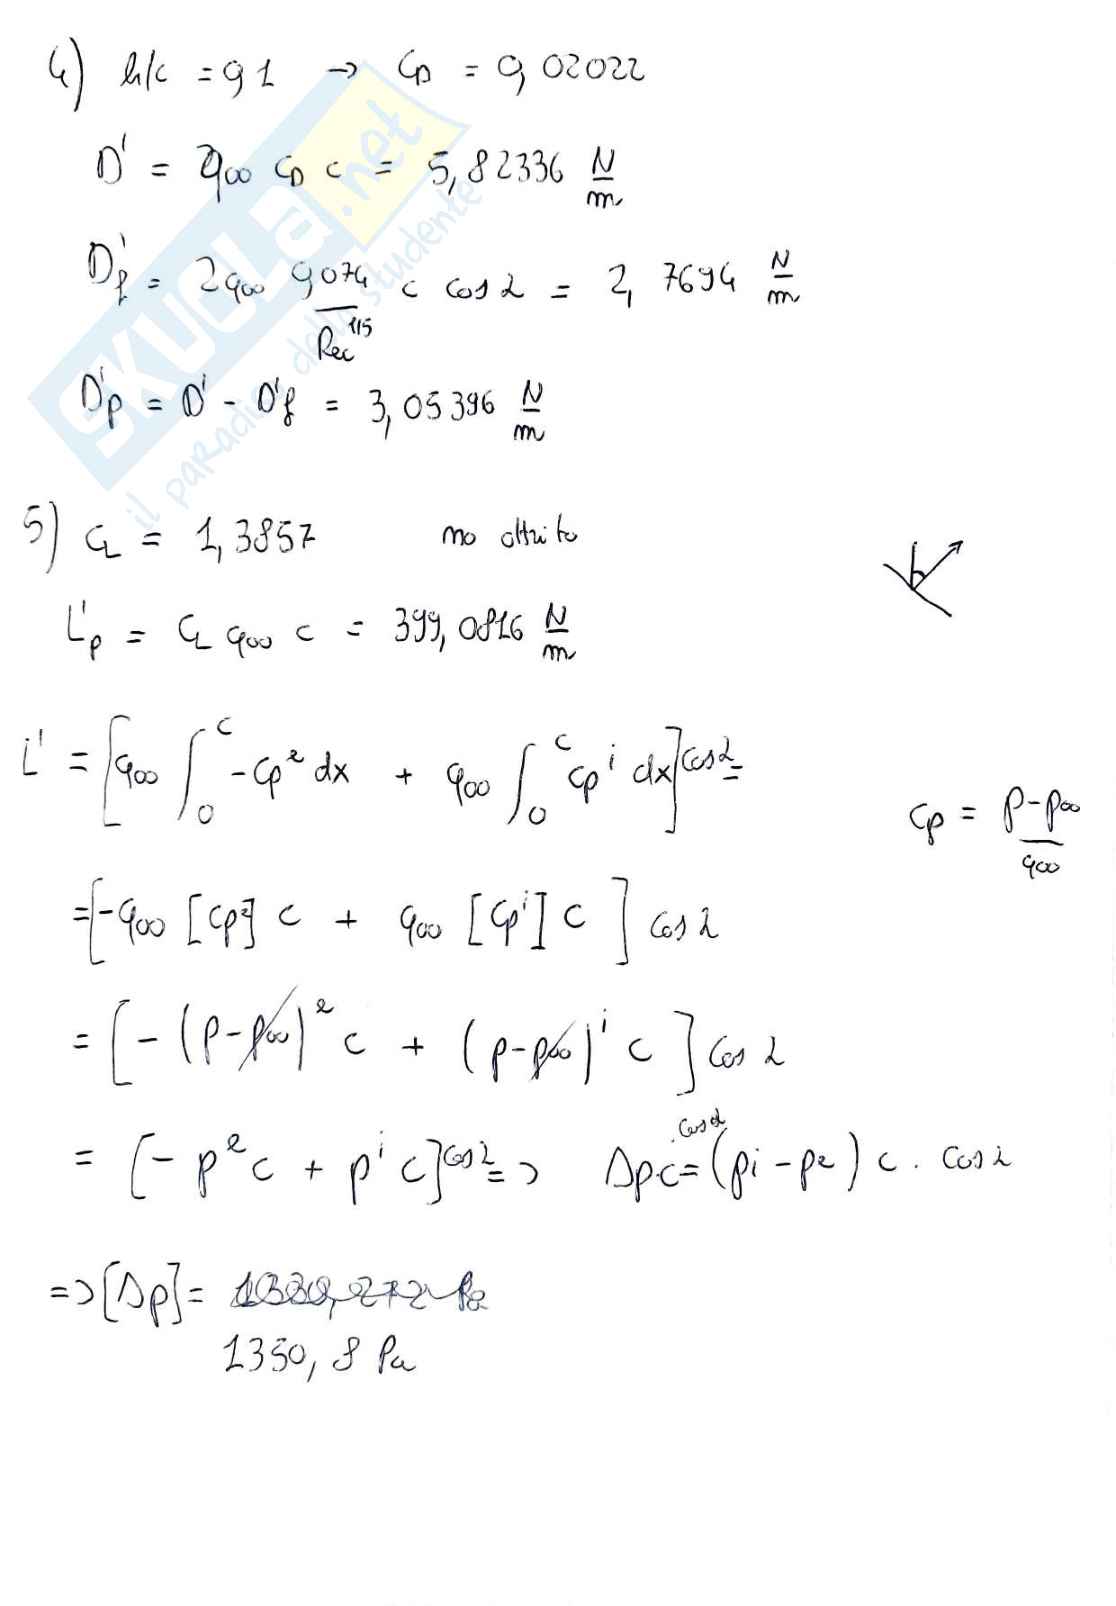 4) h/c = 0,1 → C_D = 0,02022
D' = q∞ C_D c = 5,82336 N/m
D'_f = 2q∞ 0,074/Rec^1/5 c cos α = 2,7694 N/m
D'_p = D' - D'_f = 3,05396 N/m
5) C_L = 1,3857 no attrito
L'_p = C_L q∞ c = 399,0816 N/m
L' = [q∞ ∫_0^c -Cp^e dx + q∞ ∫_0^c Cp^i dx] cos α =
Cp = (p-p∞)/q∞
= [-q∞ [Cp^e] c + q∞ [Cp^i] c ] cos α
= [-(p-p∞)^e c + (p-p∞)^i c ] cos α
= [-p^e c + p^i c] cos α => Δp·c cos α = (pi - pe) c · cos α
=> [Δp] =
1350,8 Pa
SKUOLA.net
il paradiso dello studente